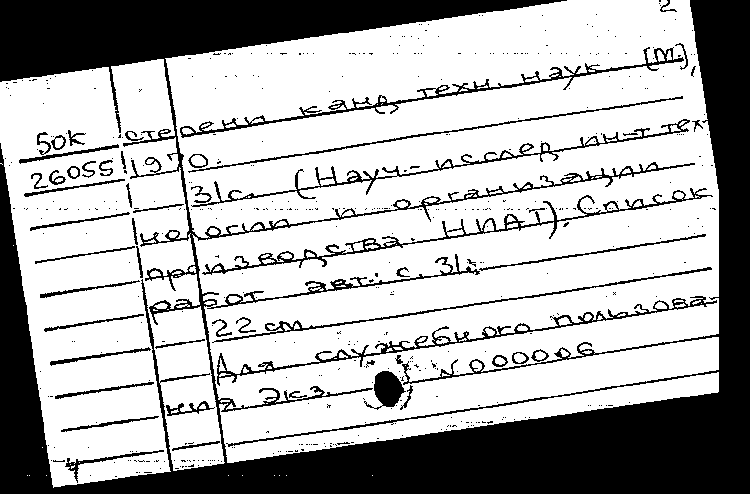 2
50К степени канд. техн. наук. (М.),
26055 1970.
31с. (Науч.-исслед. ин-т тех-
нологии и организации
производства. НИАТ). Список
работ авт.: с. 31.
22 см.
Для служебного пользова-
ния. Экз. N 000006
4